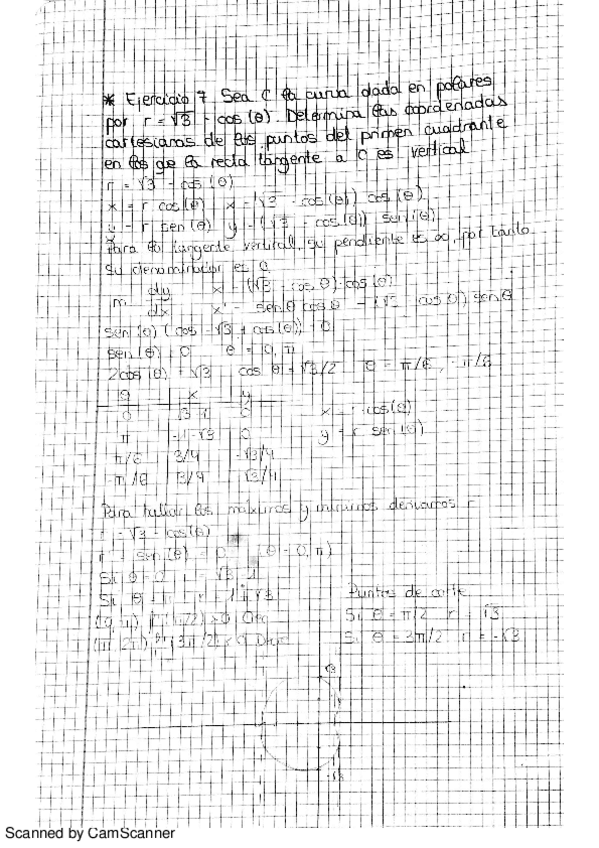 * Ejercicio 7 Sea C la curva dada en polares
por r = √3 - cos (θ). Determina las coordenadas
cartesianas de los puntos del primer cuadrante
en los qe la recta tangente a C es vertical
r = √3 - cos (θ)
x = r cos (θ) x = (√3 - cos (θ)) cos (θ)
y = r sen (θ) y = (√3 - cos (θ)) sen (θ)
Para la tangente vertical, su pendiente es ∞, por tanto
su denominador es 0
m dy x = (√3 - cos θ) · cos (θ)
dx x' = sen θ cos θ - (√3 - cos θ) sen θ
sen (θ) (cos - √3 + cos (θ)) = 0
sen (θ) = 0 θ = 0, π
2cos (θ) = √3 cos θ = √3/2 θ = π/6, -π/6
θ x y
0 √3-1 0 x = r cos (θ)
π -1-√3 0 y = r sen (θ)
π/6 3/4 -√3/4
-π/6 3/4 √3/4
Para hallar los máximos y mínimos derivamos r
r = √3 - cos (θ)
r' = sen (θ) = 0 (θ = 0, π)
Si θ = 0 r = √3 - 1
Si θ = π r = 1 + √3
Puntos de corte
Si θ = π/2 r = √3
Si θ = 3π/2 r = -√3
√3
-√3
Scanned by CamScanner